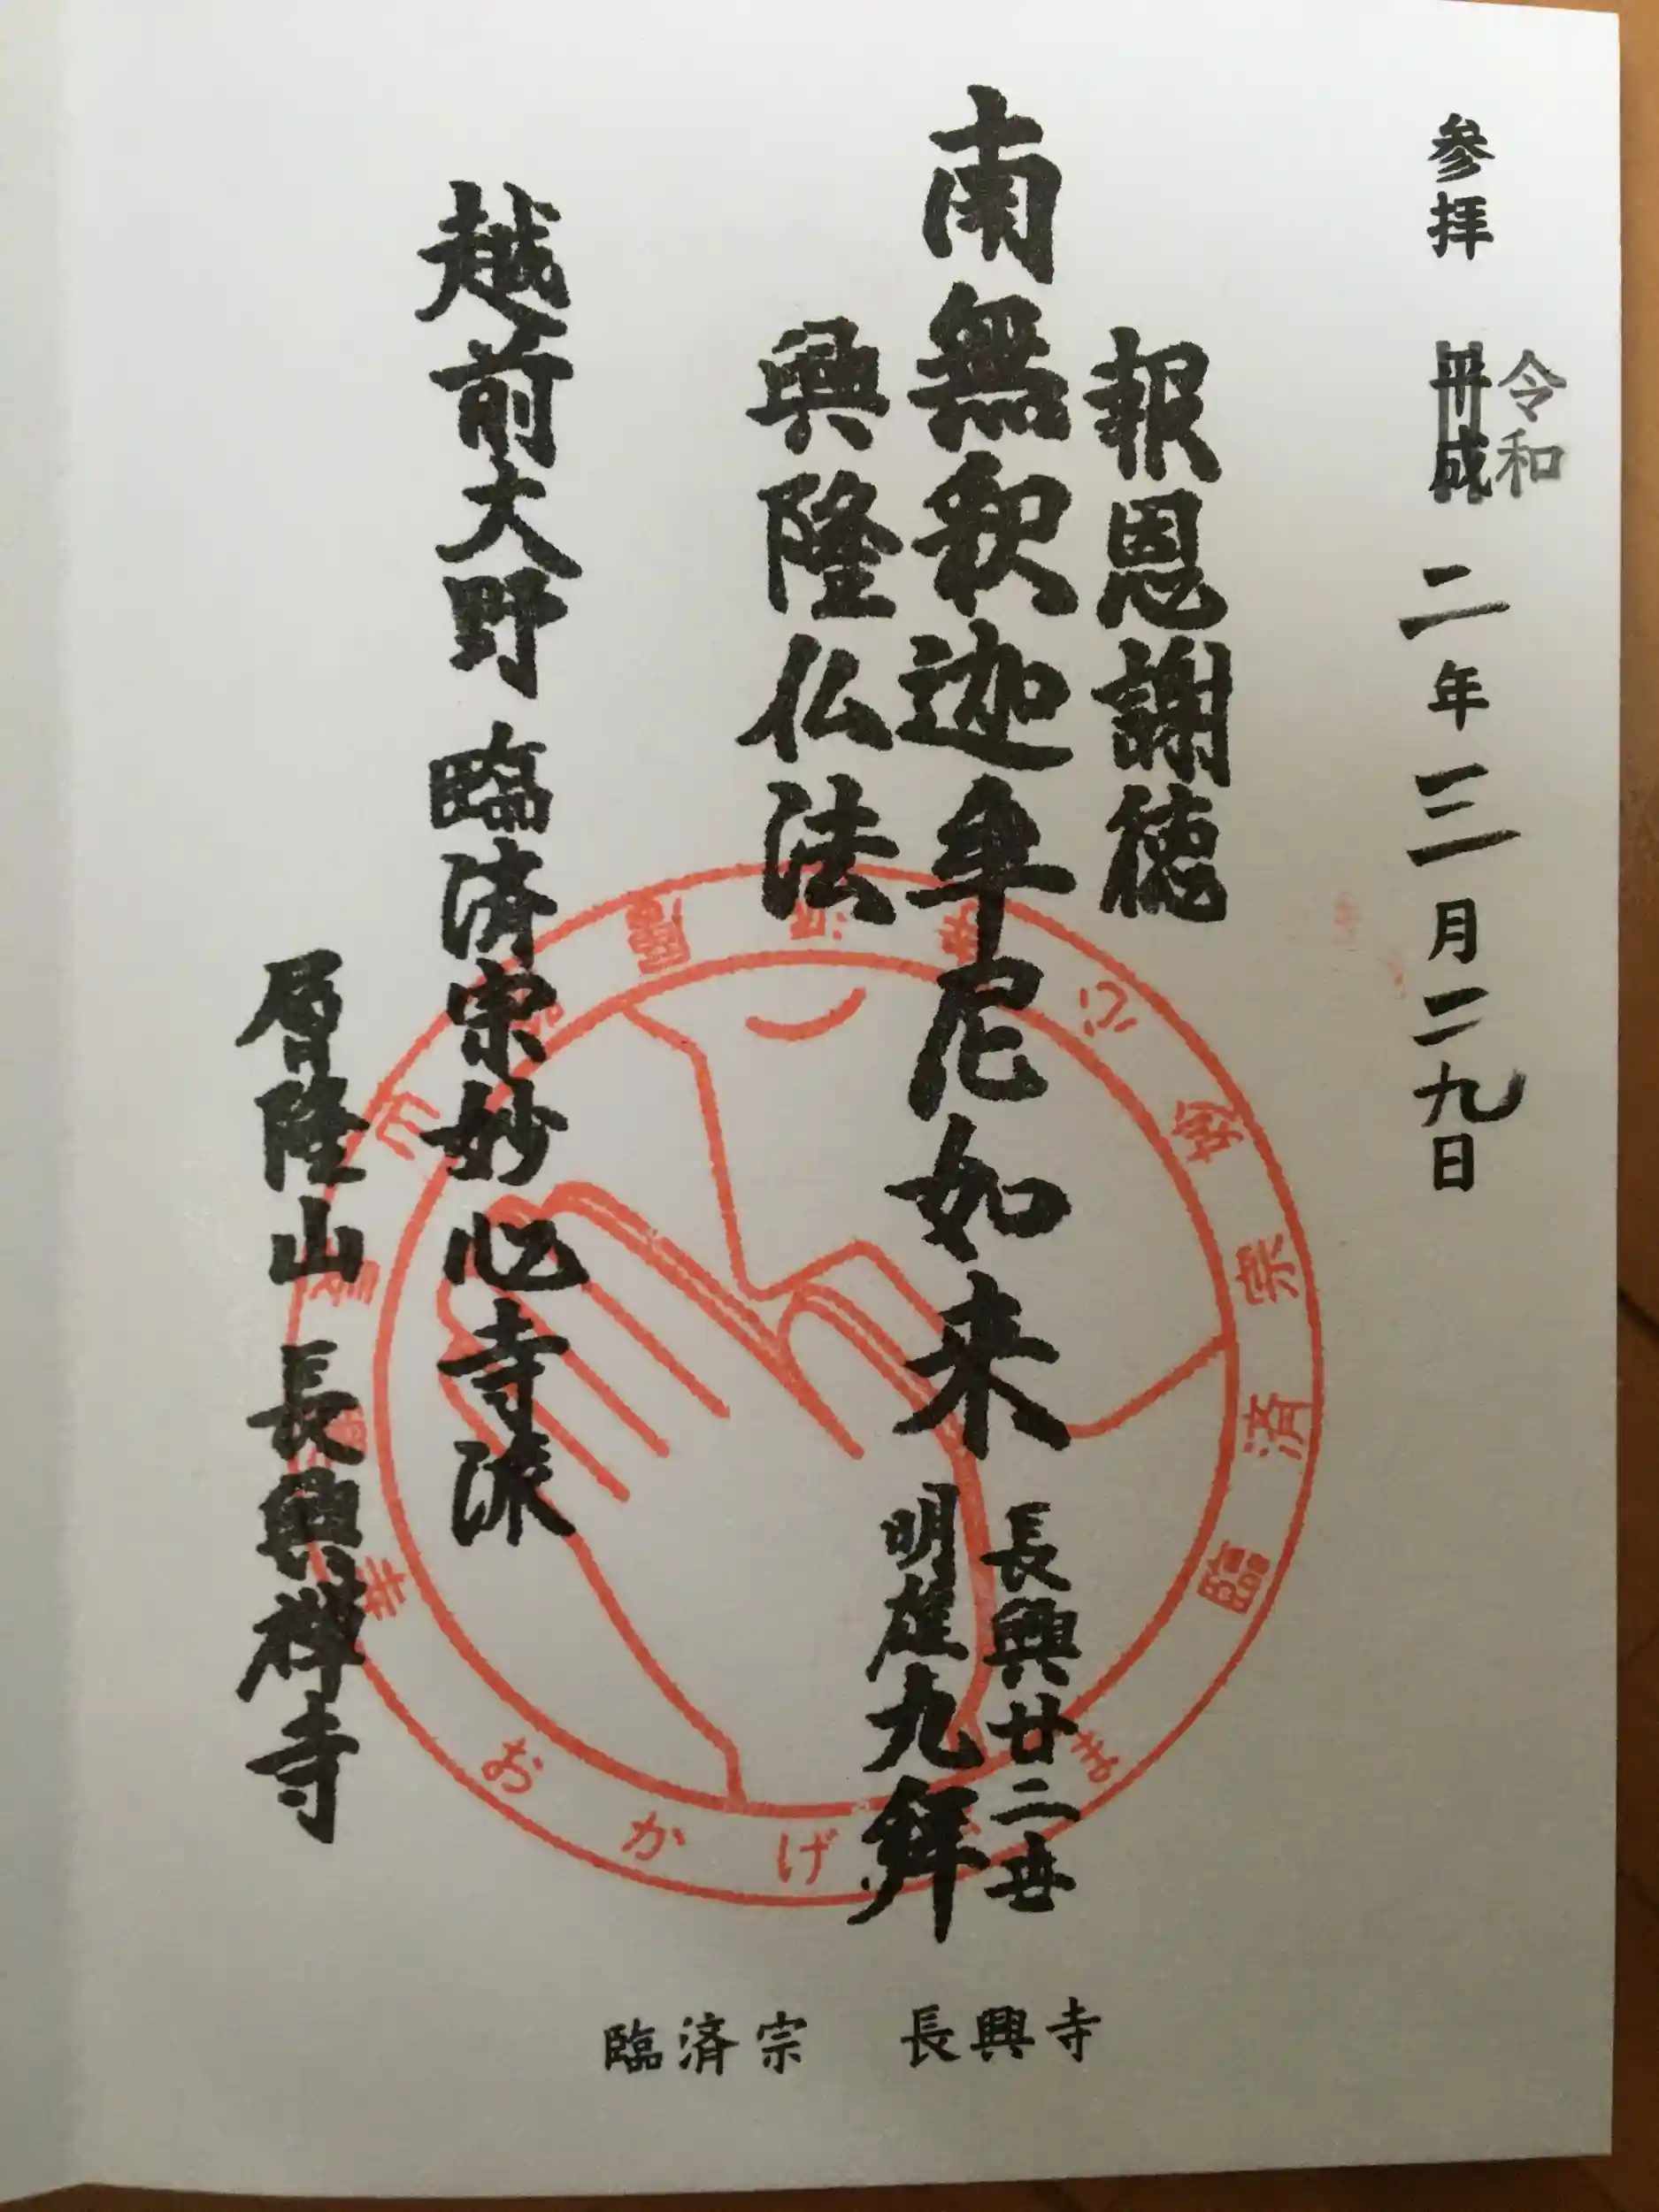 参拝 平成 二年三月二九日
令和
報恩謝徳
南無釈迦牟尼如来
興隆仏法
長興廿二世
明雄九拜
越前大野 臨済宗妙心寺派
層隆山 長興禅寺
臨済宗妙心寺
おかげ ま
臨済宗 長興寺